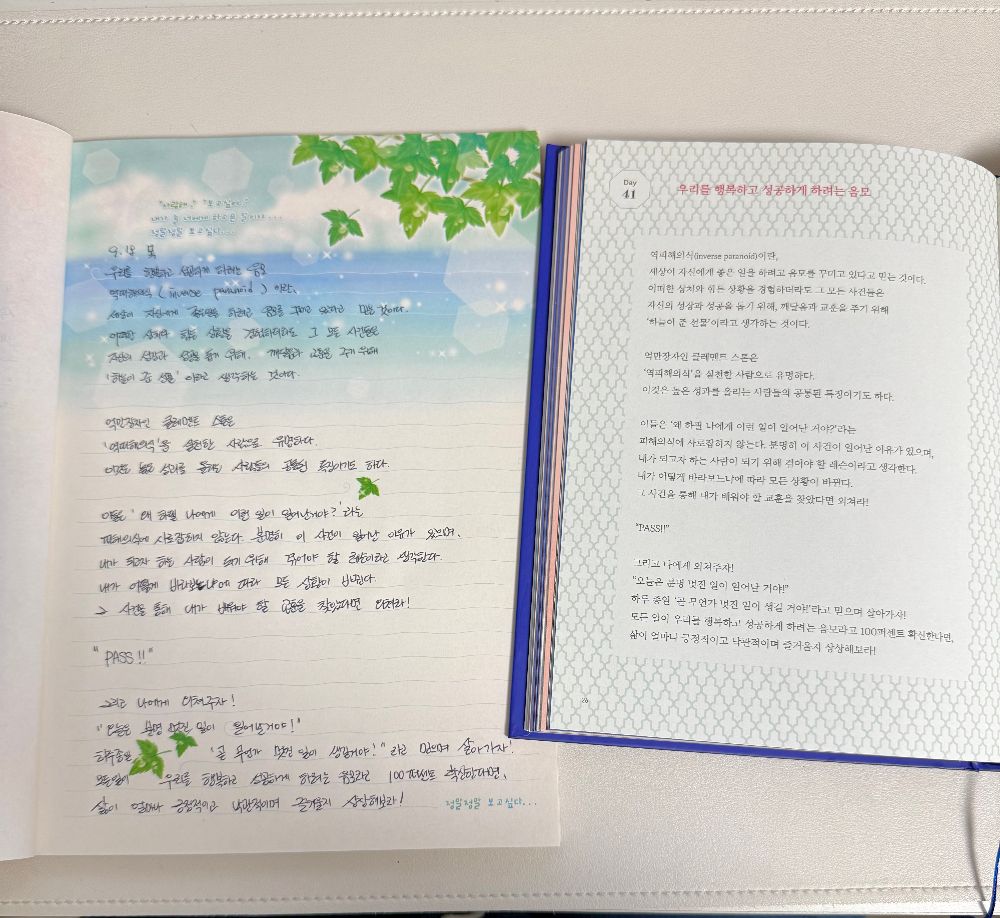 "사랑해." "보고싶어."
내가 늘 너에게 하고픈 말이야...
정말정말 보고싶다...
9. 18 목
우리를 행복하고 성공하게 하려는 음모
역피해의식 ( inverse paranoid ) 이란,
세상이 자신에게 좋은 일을 하려고 음모를 꾸미고 있다고 믿는 것이다.
어떠한 상처와 힘든 상황을 경험하더라도 그 모든 사건들은
자신의 성장과 성공을 돕기 위해, 깨달음과 교훈을 주기 위해
'하늘이 준 선물' 이라고 생각하는 것이다.
억만장자인 클레멘트 스톤은
'역피해의식'을 실천한 사람으로 유명하다.
이것은 높은 성과를 올리는 사람들의 공통된 특징이기도 하다.
이들은 '왜 하필 나에게 이런 일이 일어난거야?' 라는
피해의식에 사로잡히지 않는다. 분명히 이 사건이 일어난 이유가 있으며,
내가 되고자 하는 사람이 되기 위해 겪어야 할 레슨이라고 생각한다.
내가 어떻게 바라보느냐에 따라 모든 상황이 바뀐다.
그 사건을 통해 내가 배워야 할 교훈을 찾았다면 외쳐라!
"PASS!!"
그리고 나에게 외쳐주자!
"오늘은 분명 멋진 일이 일어난거야!"
하루종일 "곧 무언가 멋진 일이 생길거야!" 라고 믿으며 살아가자!
모든일이 우리를 행복하고 성공하게 하려는 음모라고 100퍼센트 확신한다면,
삶이 얼마나 긍정적이고 낙관적이며 즐거울지 상상해보라!
정말정말 보고싶다...
Day
41
우리를 행복하고 성공하게 하려는 음모
역피해의식(inverse paranoid)이란,
세상이 자신에게 좋은 일을 하려고 음모를 꾸미고 있다고 믿는 것이다.
어떠한 상처와 힘든 상황을 경험하더라도 그 모든 사건들은
자신의 성장과 성공을 돕기 위해, 깨달음과 교훈을 주기 위해
'하늘이 준 선물'이라고 생각하는 것이다.
억만장자인 클레멘트 스톤은
'역피해의식'을 실천한 사람으로 유명하다.
이것은 높은 성과를 올리는 사람들의 공통된 특징이기도 하다.
이들은 '왜 하필 나에게 이런 일이 일어난 거야?'라는
피해의식에 사로잡히지 않는다. 분명히 이 사건이 일어난 이유가 있으며,
내가 되고자 하는 사람이 되기 위해 겪어야 할 레슨이라고 생각한다.
내가 어떻게 바라보느냐에 따라 모든 상황이 바뀐다.
그 사건을 통해 내가 배워야 할 교훈을 찾았다면 외쳐라!
"PASS!!"
그리고 나에게 외쳐주자!
"오늘은 분명 멋진 일이 일어난 거야!"
하루 종일 '곧 무언가 멋진 일이 생길 거야!'라고 믿으며 살아가자!
모든 일이 우리를 행복하고 성공하게 하려는 음모라고 100퍼센트 확신한다면,
삶이 얼마나 긍정적이고 낙관적이며 즐거울지 상상해보라!